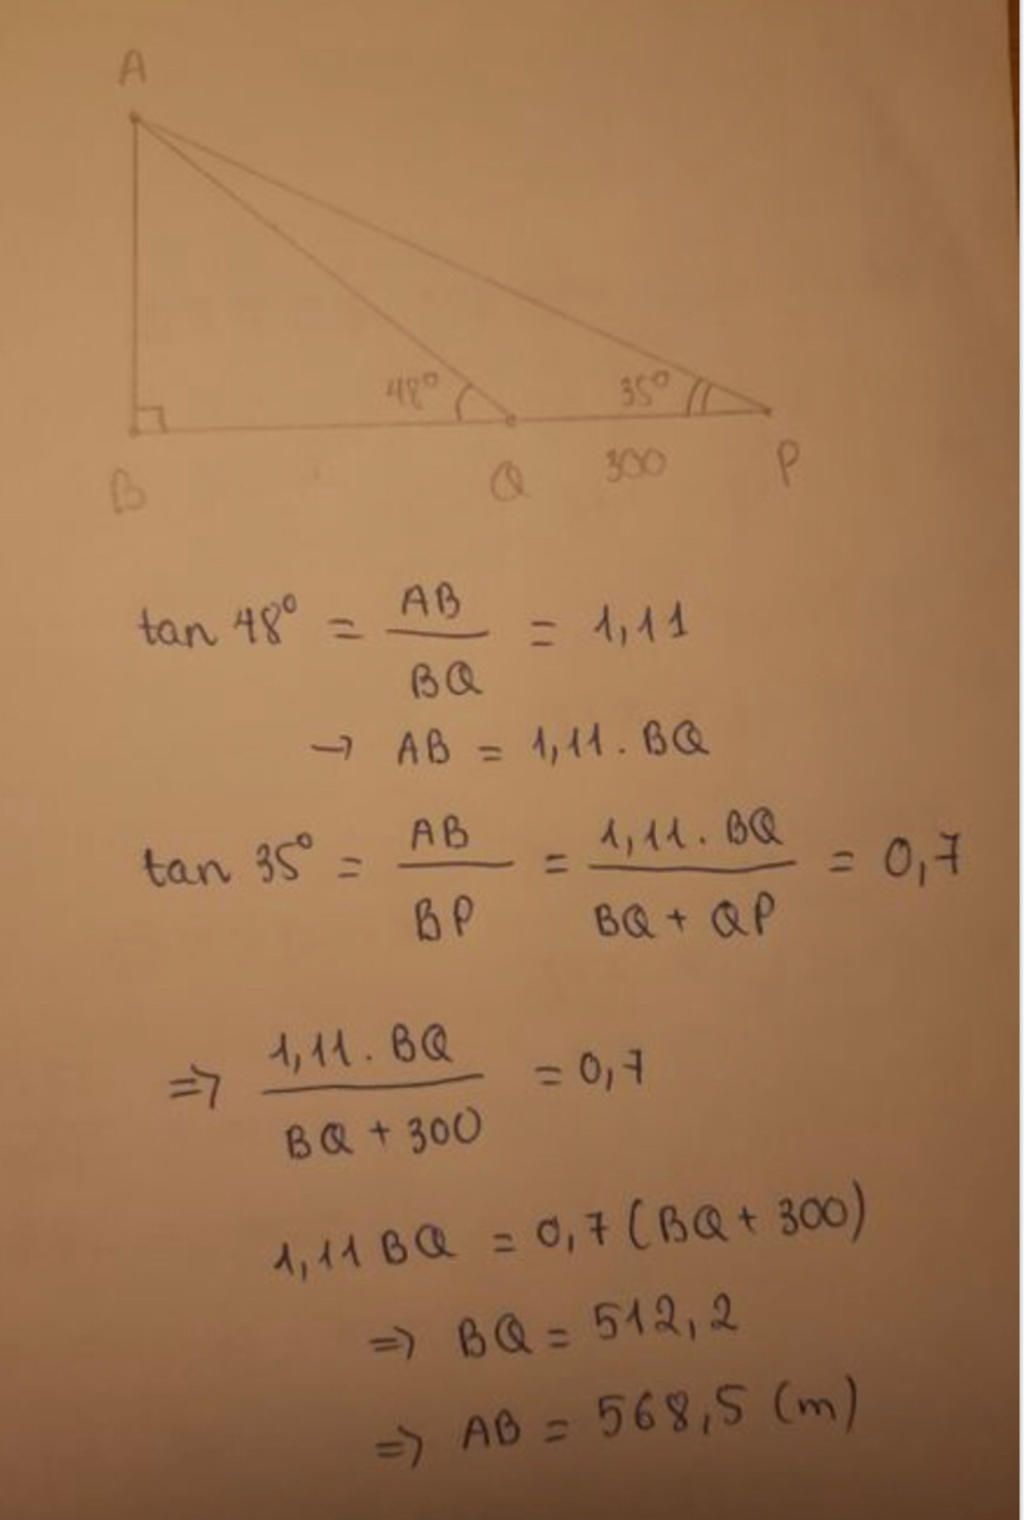 A
48° 35°
B Q 300 P
tan 48° = AB / BQ = 1,11
→ AB = 1,11 . BQ
tan 35° = AB / BP = 1,11 . BQ / BQ + QP = 0,7
⇒ 1,11 . BQ / BQ + 300 = 0,7
1,11 BQ = 0,7 (BQ + 300)
⇒ BQ = 512,2
⇒ AB = 568,5 (m)